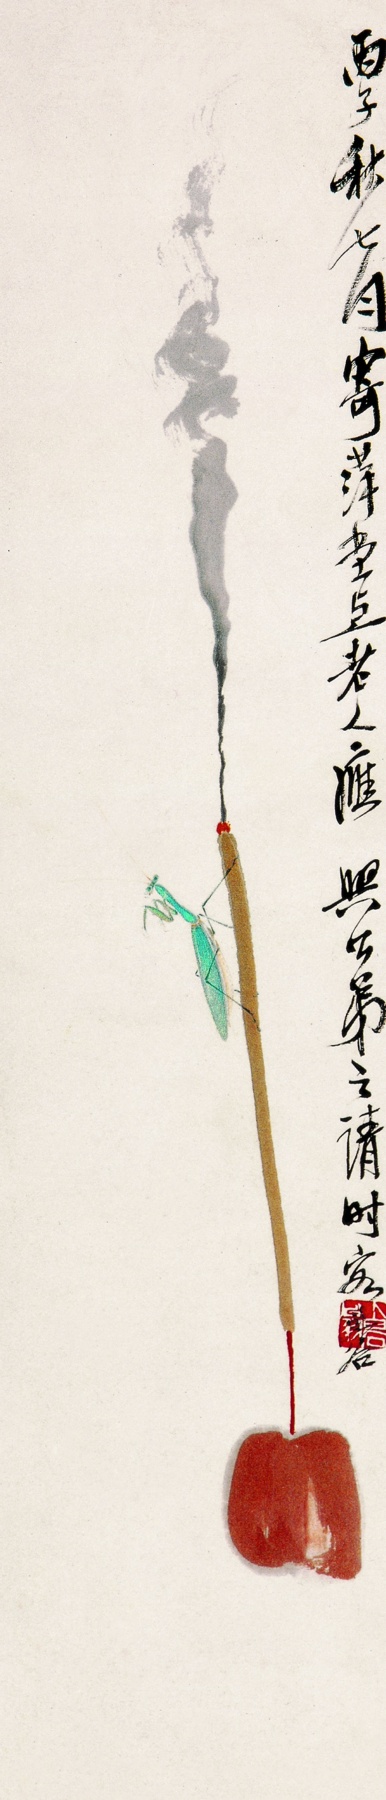 丙子秋七月寄萍堂上老人應 公弟之請时客